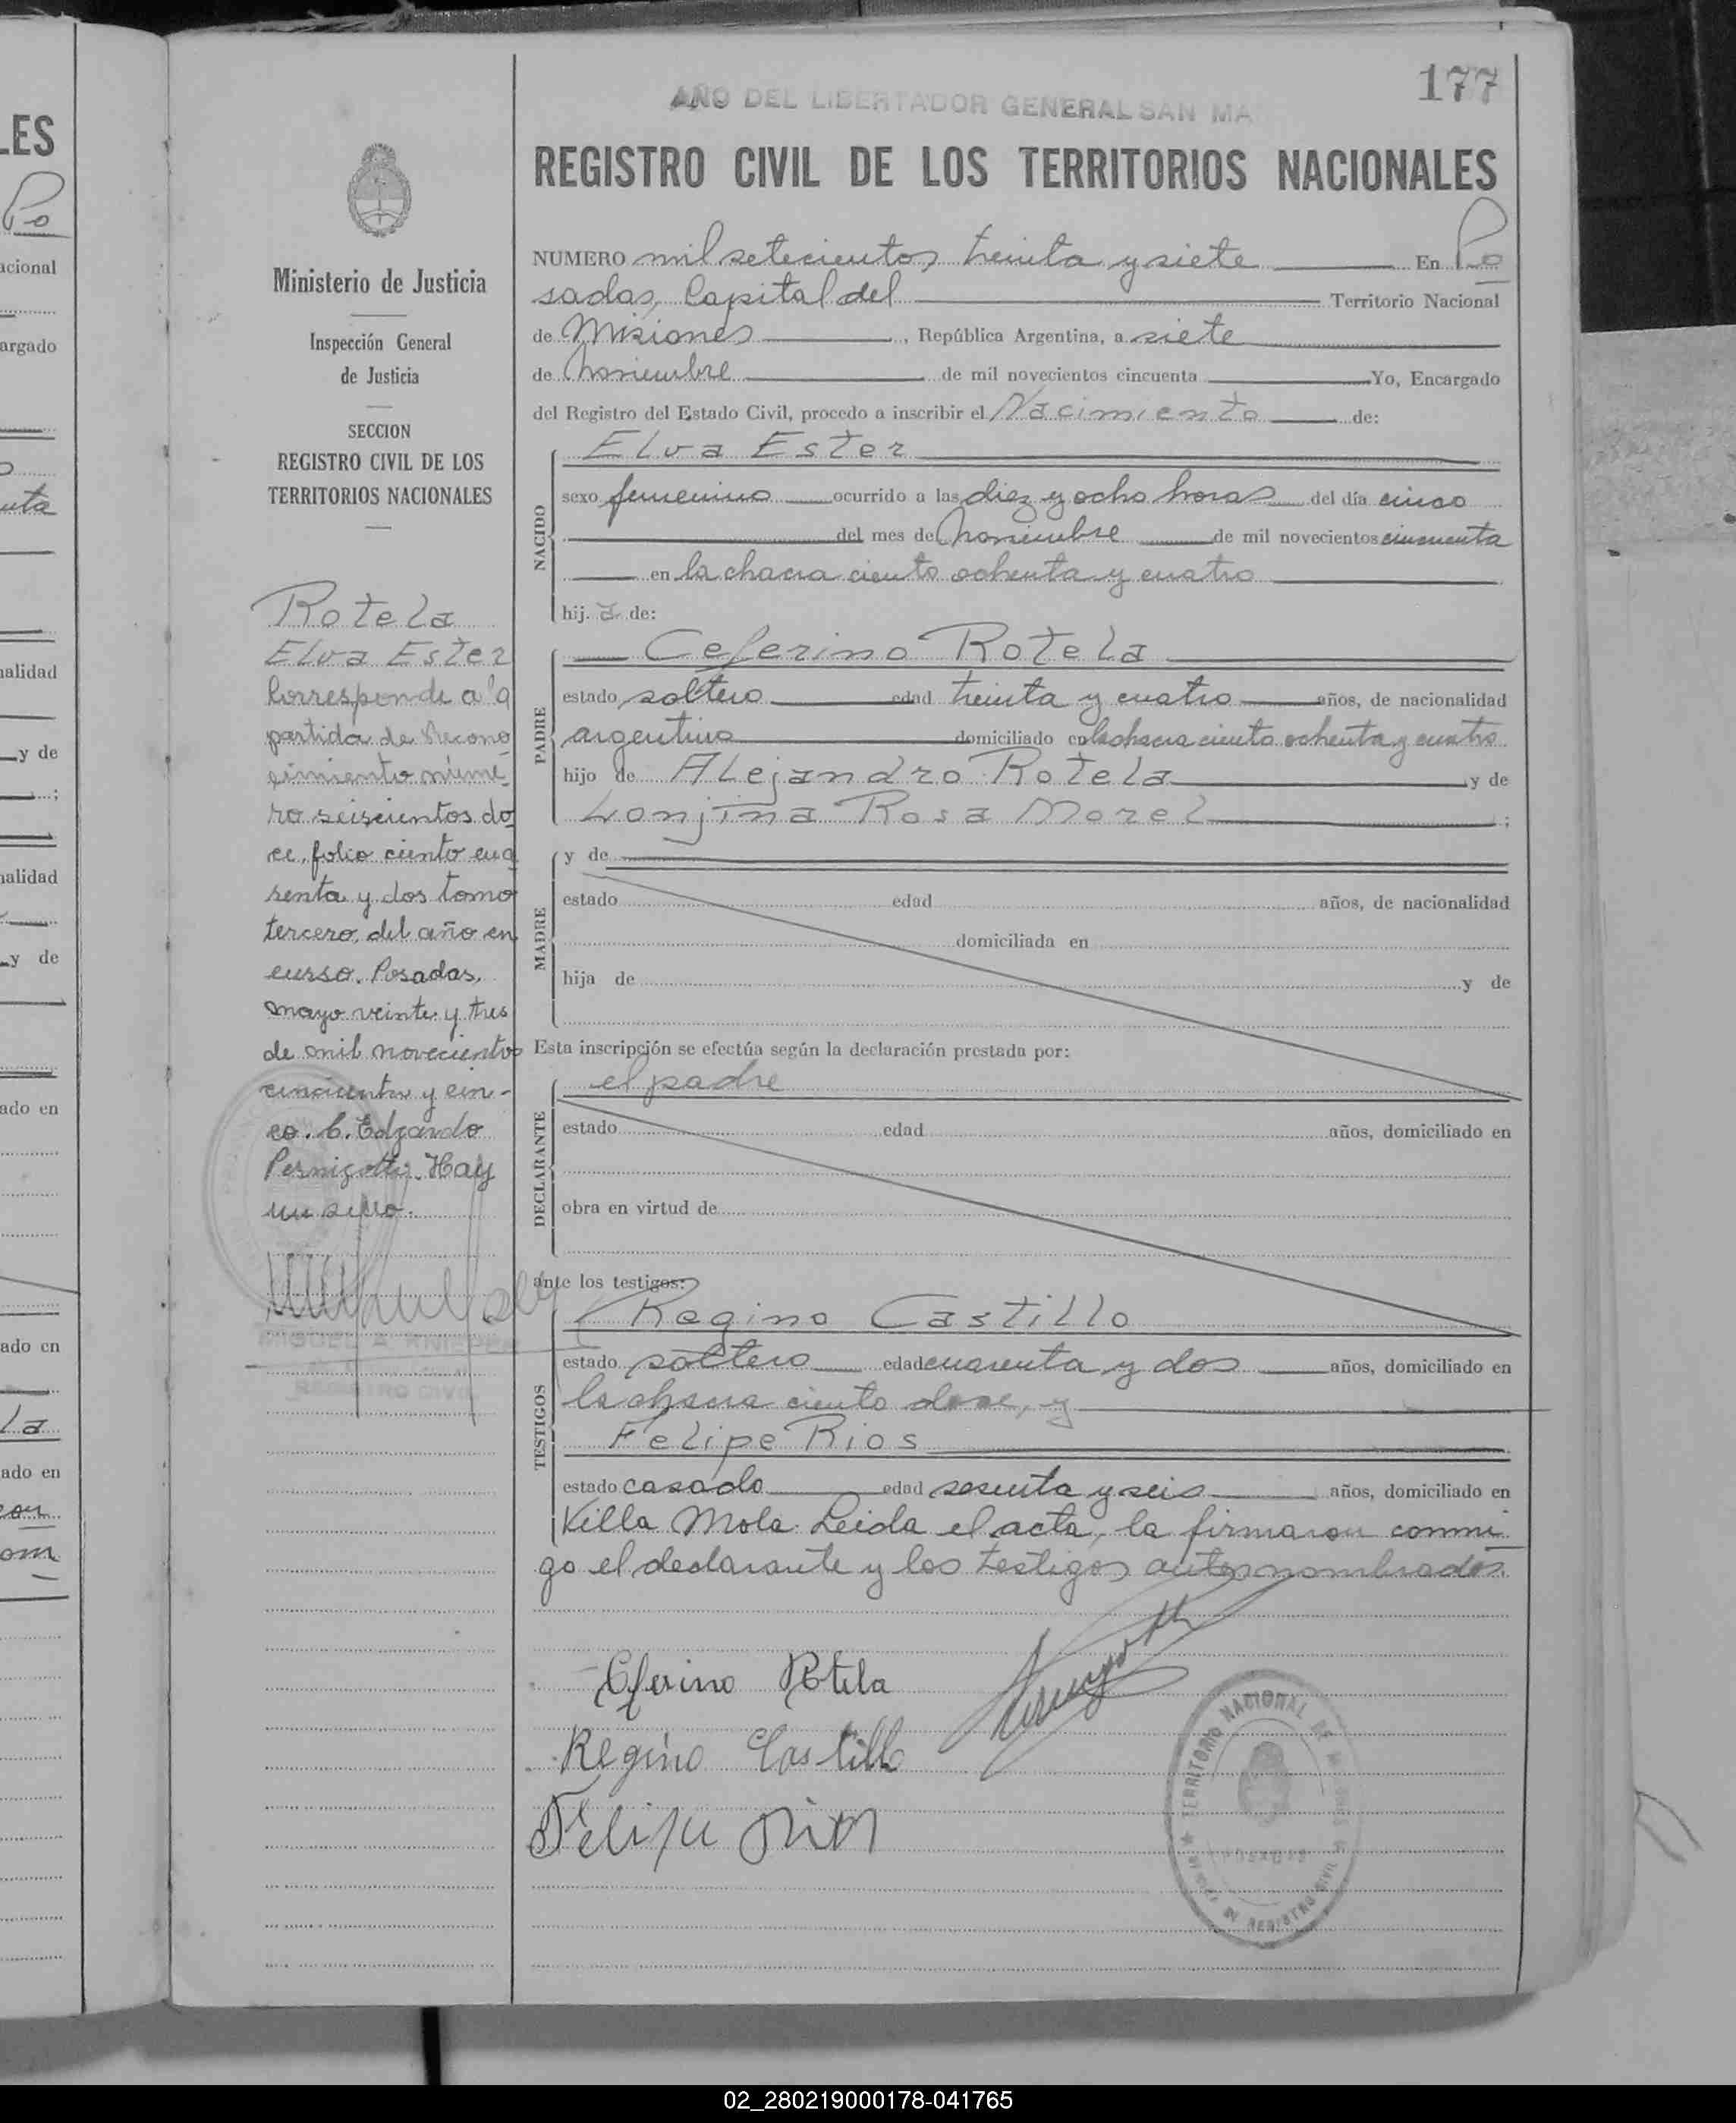 177
AÑO DEL LIBERTADOR GENERAL SAN MA
REGISTRO CIVIL DE LOS TERRITORIOS NACIONALES
NUMERO mil setecientos treinta y siete En Po
sadas, Capital del Territorio Nacional
de Misiones, República Argentina, a siete
de Noviembre de mil novecientos cincuenta Yo, Encargado
del Registro del Estado Civil, procedo a inscribir el Nacimiento de:
NACIDO
Elva Ester
sexo femenino ocurrido a las diez y ocho horas del día cinco
del mes de Noviembre de mil novecientos cincuenta
en la chacra ciento ochenta y cuatro
hij a de:
PADRE
Ceferino Rotela
estado soltero edad treinta y cuatro años, de nacionalidad
argentino domiciliado en la chacra ciento ochenta y cuatro
hijo de Alejandro Rotela y de
Lonjina Rosa Morel ;
MADRE
y de
estado edad años, de nacionalidad
domiciliada en
hija de y de
Esta inscripción se efectúa según la declaración prestada por:
DECLARANTE
el padre
estado edad años, domiciliado en
obra en virtud de
ante los testigos:
TESTIGOS
Regino Castillo
estado soltero edad cuarenta y dos años, domiciliado en
la chacra ciento doce, y
Felipe Rios
estado casado edad sesenta y seis años, domiciliado en
Villa Mola. Leida el acta, la firmaron conmi
go el declarante y los testigos antes nombrados.
Ceferino Rotela
Regino Castillo
Felipe Rios
TERRITORIO NACIONAL DE MISIONES
POSADAS
DE REGISTRO CIVIL
Ministerio de Justicia
Inspección General
de Justicia
SECCION
REGISTRO CIVIL DE LOS
TERRITORIOS NACIONALES
Rotela
Elva Ester
Corresponde a la
partida de Recono
cimiento núme
ro seiscientos do
ce, folio ciento cua
renta y dos tomo
tercero, del año en
curso. Posadas,
mayo veinte y tres
de mil novecientos
cincuenta y cin-
co. C. Edgardo
Pernigotti. Hay
un sello.
REGISTRO CIVIL
LES
Po
acional
argado
nta
alidad
y de
;
alidad
y de
ado en
ado en
la
ado en
02_280219000178-041765